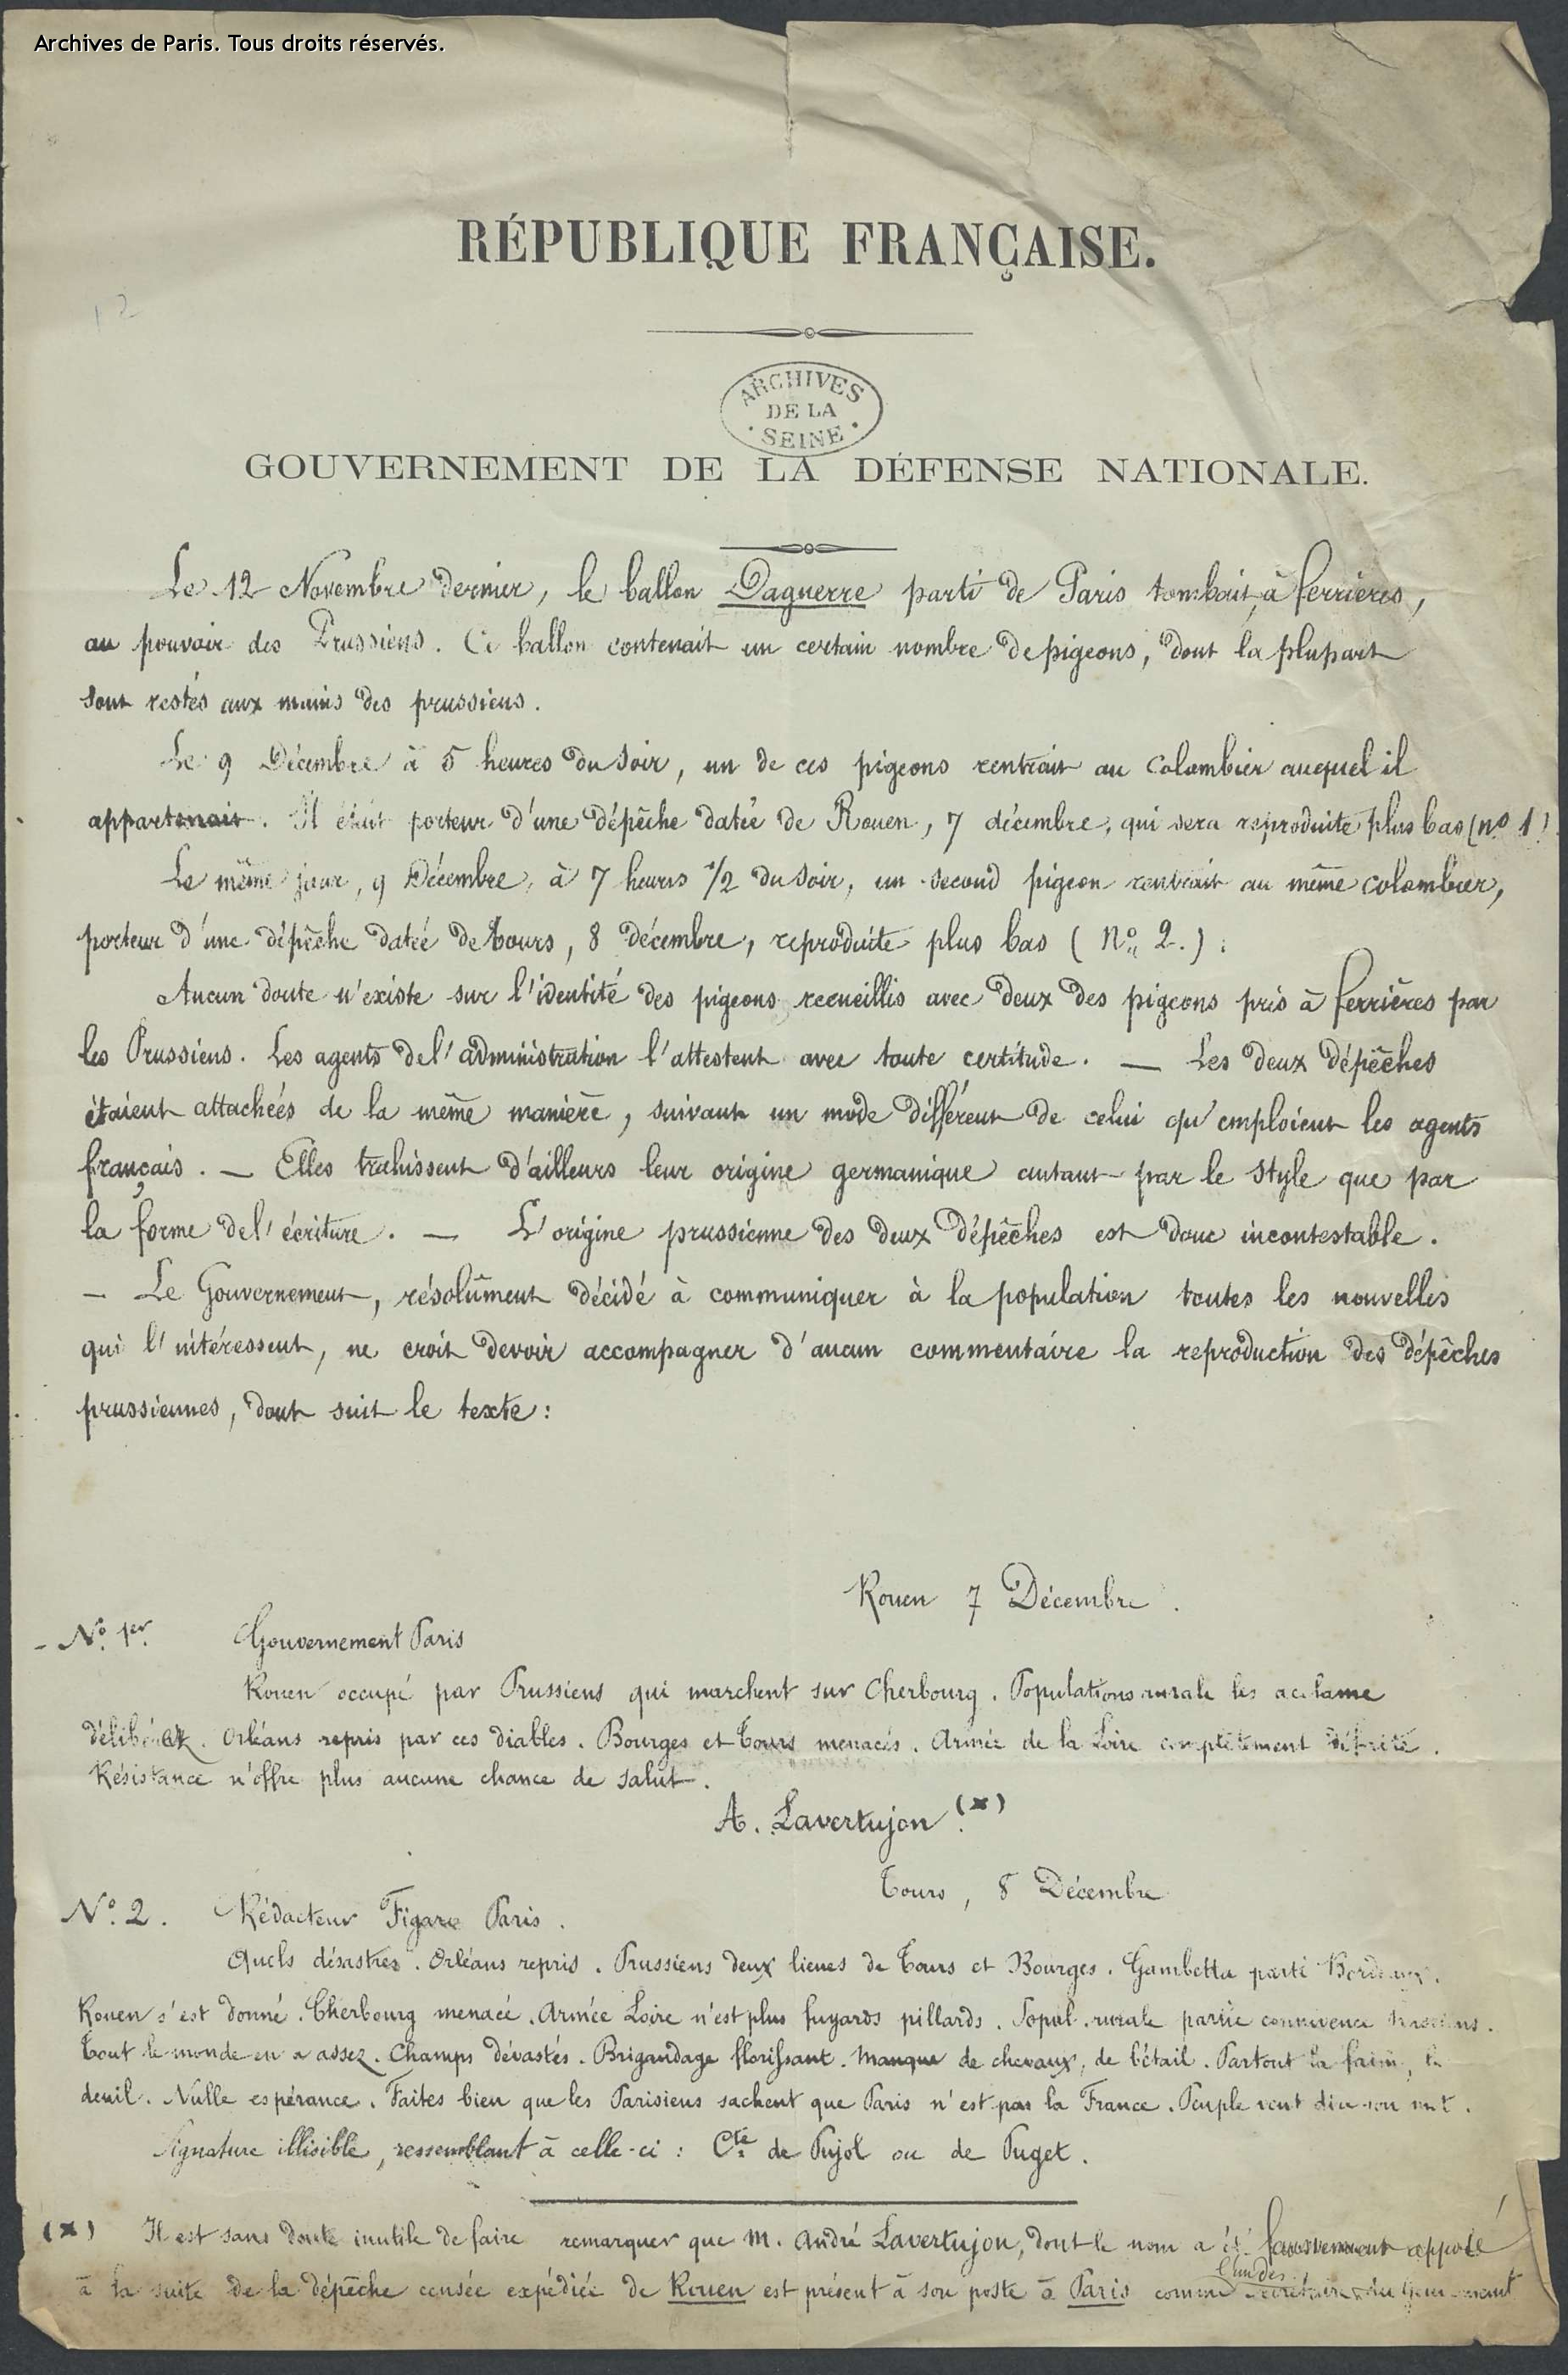 Archives de Paris. Tous droits réservés.
RÉPUBLIQUE FRANÇAISE.
12
ARCHIVES
DE LA
SEINE
GOUVERNEMENT DE LA DÉFENSE NATIONALE.
Le 12 Novembre dernier, le ballon Daguerre parti de Paris tombait, à ferrières,
au pouvoir des Prussiens. Ce ballon contenait un certain nombre de pigeons, dont la plupart
sont restés aux mains des prussiens.
Le 9 Décembre à 5 heures du soir, un de ces pigeons rentrait au colombier auquel il
appartenait. Il était porteur d'une dépêche datée de Rouen, 7 décembre, qui sera reproduite plus bas (no 1)
Le même jour, 9 Décembre, à 7 heures 1/2 du soir, un second pigeon rentrait au même colombier,
porteur d'une dépêche datée de Tours, 8 décembre, reproduite plus bas (No 2.).
Aucun doute n'existe sur l'identité des pigeons recueillis avec deux des pigeons pris à ferrières par
les Prussiens. Les agents de l'administration l'attestent avec toute certitude. — Les deux dépêches
étaient attachées de la même manière, suivant un mode différent de celui qu'emploient les agents
français. — Elles trahissent d'ailleurs leur origine germanique autant par le style que par
la forme de l'écriture. — L'origine prussienne des deux dépêches est donc incontestable.
— Le Gouvernement, résolûment décidé à communiquer à la population toutes les nouvelles
qui l'intéressent, ne croit devoir accompagner d'aucun commentaire la reproduction des dépêches
prussiennes, dont suit le texte:
Rouen 7 Décembre.
- No. 1er. Gouvernement Paris
Rouen occupé par Prussiens qui marchent sur Cherbourg. Populations rurale les acclame
délibérez. Orléans repris par ces diables. Bourges et Tours menacés. Armée de la Loire complètement défaite.
Résistance n'offre plus aucune chance de salut.
A. Lavertujon (x)
Tours, 8 Décembre
No. 2. Rédacteur Figaro Paris.
Quels désastres. Orléans repris. Prussiens deux lieues de Tours et Bourges. Gambetta parti Bordeaux.
Rouen s'est donné. Cherbourg menacé. Armée Loire n'est plus fuyards pillards. Popul. rurale partie connivence Prussiens.
Tout le monde en a assez. Champs dévastés. Brigandage florissant. Manque de chevaux, de bétail. Partout la faim, le
deuil. Nulle espérance. Faites bien que les Parisiens sachent que Paris n'est pas la France. Peuple veut dire son mot.
Signature illisible, ressemblant à celle-ci: Cte de Pujol ou de Puget.
(x) Il est sans doute inutile de faire remarquer que M. André Lavertujon, dont le nom a été faussement apposé
à la suite de la dépêche censée expédiée de Rouen est présent à son poste à Paris comme l'un des secrétaires du Gouvernement